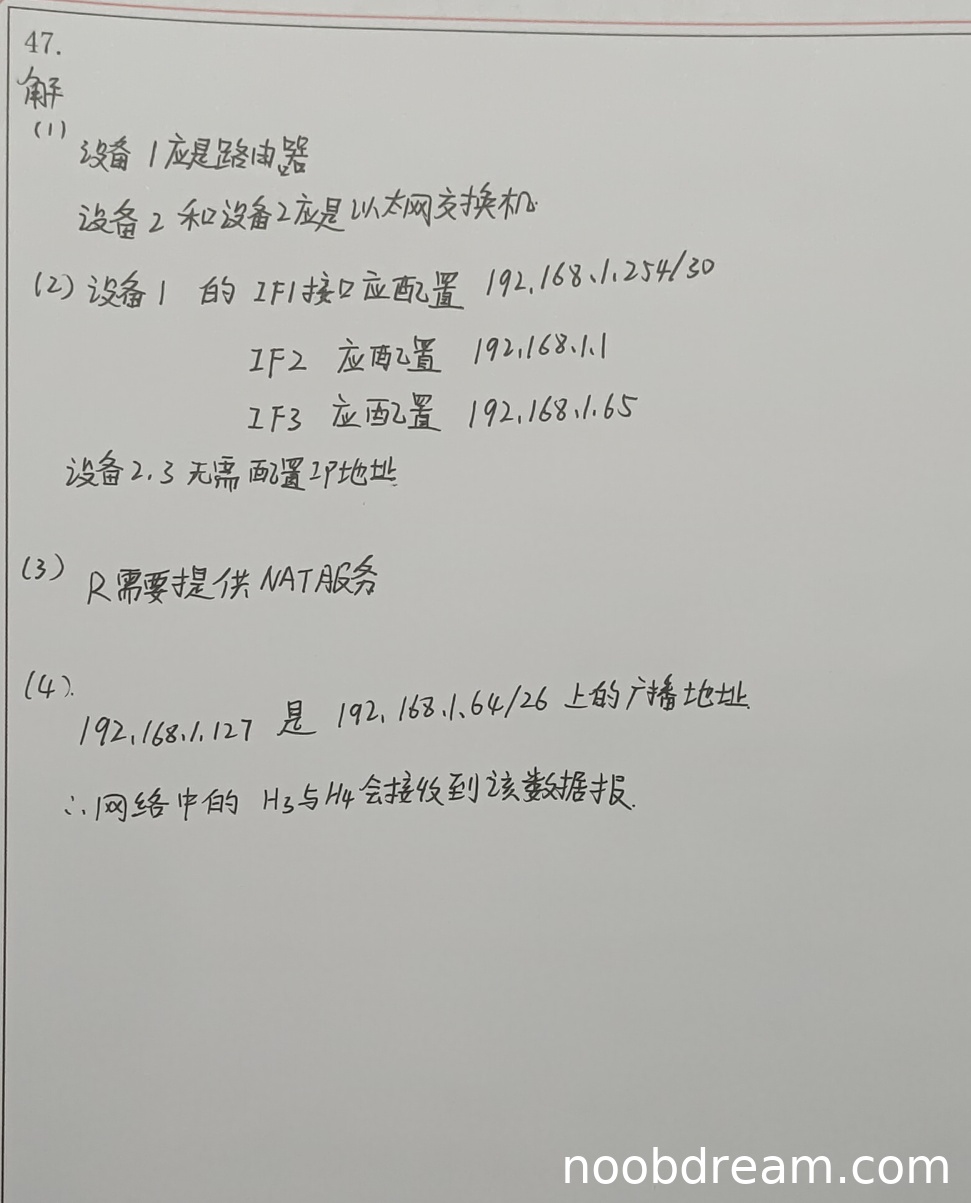 47.
解
(1)
设备1应是路由器
设备2和设备2应是以太网交换机.
(2) 设备1 的 IF1接口应配置 192.168.1.254/30
IF2 应配置 192.168.1.1
IF3 应配置 192.168.1.65
设备2.3无需配置IP地址.
(3) R需要提供NAT服务
(4).
192.168.1.127 是 192.168.1.64/26 上的广播地址.
∴网络中的 H3与H4会接收到该数据报.
noobdream.com